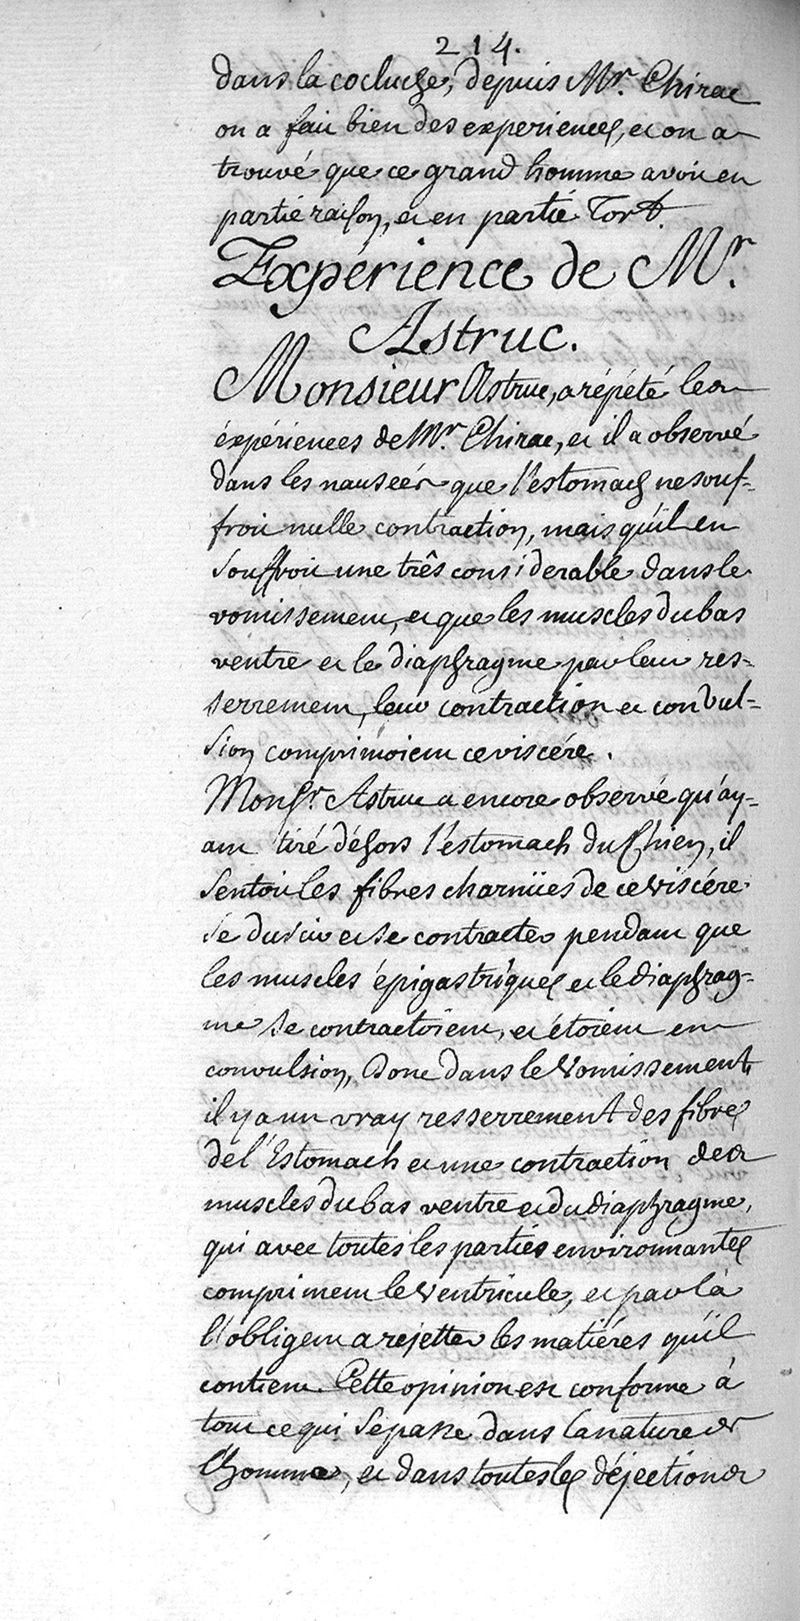 214.
dans la cocluche, depuis Mr. Chirac
on a fait bien des experiences, et on a
trouvé que ce grand homme avoit en
partie raison, et en partie Tort.
Expérience de Mr.
Astruc.
Monsieur Astruc, a répété les
éxpériences de Mr. Chirac, et il a observé
dans les nausées que l'estomach ne souf-
froit nulle contraction, mais qu'il en
souffroit une três considerable dans le
vomissement, et que les muscles du bas
ventre et le diaphragme par leur res-
serrement, leur contraction et convul-
sion comprimoient ce viscére.
Monsr. Astruc a encore observé qu'ay-
ant tiré déhors l'éstomach du Chien, il
sentoit les fibres charnües de ce viscére
se durcir et se contracter pendant que
les muscles épigastriques et le diaphrag-
me se contractoient, et étoient en
convulsion, Donc dans le vomissement
il y a un vray resserrement des fibres
de l'Estomach et une contraction des
muscles du bas ventre et du diaphragme,
qui avec toutes les parties environnantes
compriment le ventricule, et par là
l'obligent a rejetter les matiéres qu'il
contient. Cette opinion est conforme à
tout ce qui se passe dans la nature de
l'homme, et dans toutes les déjections